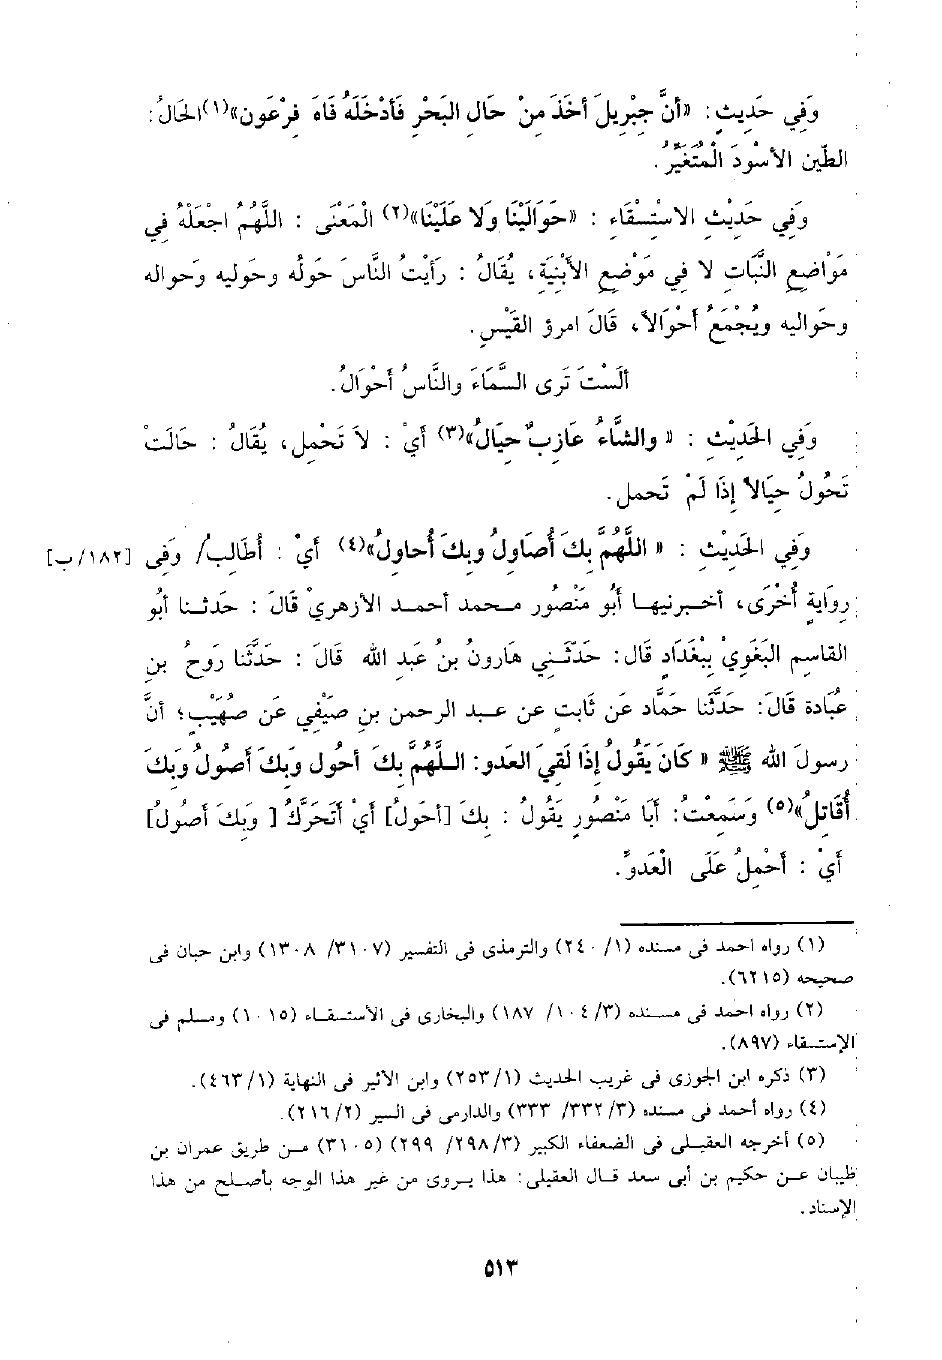 وَفِي حَدِيثٍ : «أنَّ جِبْرِيلَ أخَذَ مِنْ حَالِ البَحْرِ فَأدْخَلَهُ فَاهَ فِرْعَون»(١)الحَالُ:
الطّين الأسْودَ الْمُتَغَيِّرُ.
وَفِي حَدِيْثِ الاسْتِسْقَاءِ : «حَوَالَيْنَا وَلا عَلَيْنَا»(٢) الْمَعْنَى : اللَّهُمَّ اجْعَلْهُ فِي
مَوَاضِعِ النَّبَاتِ لا فِي مَوْضِعِ الأبْنِيَةِ، يُقَالُ : رَأيْتُ النَّاسَ حَولُه وحَوليه وحَواله
وحَواليه ويُجْمَعُ أحْوَالاً، قَالَ امرؤ القَيْسِ.
ألَسْتَ تَرى السَّمَاءَ والنَّاسُ أحْوَالُ.
وَفِي الحَدِيْثِ : « والشَّاءُ عَازِبٌ حِيَالُ»(٣) أيْ : لاَ تَحْمِل، يُقَالُ : حَالَتْ
تَحُولُ حِيَالاً إذَا لَمْ تَحمل.
وَفِي الحَدِيْثِ : « اللَّهُمَّ بِكَ أُصَاوِلُ وبِكَ أُحاولُ»(٤) أيْ : أُطَالِبُ/ وَفِى [١٨٢/ب]
رِوَايةٍ أُخْرَى، أخبرنيها أبُو مَنْصُور محمد أحمد الأزهريْ قَالَ : حَدثنا أبُو
القَاسِم البَغَوِيْ بِبَغْدَادٍ قَال: حَدّثَني هَارونُ بنُ عَبدِ الله قَالَ : حَدَّثَنا رَوحُ بنِ
عُبَادة قَالَ: حَدَّثَنا حَمَّاد عَن ثَابت عن عبد الرحمن بنِ صَيْفِي عَن صُهَيْبٍ؛ أنَّ
رسولَ الله ﷺ « كَانَ يَقُولُ إذَا لَقِيَ العَدو: اللَّهُمَّ بِكَ أحُول وَبِكَ أصُولُ وَبِكَ
أُقَاتِلُ»(٥) وَسَمِعْتُ: أبَا مَنْصُورٍ يَقُولُ : بِكَ [أحَولُ] أيْ أتَحَرَّكُ [ وَبِكَ أصُولُ]
أيْ : أحْمِلُ عَلَى الْعَدوِّ.
(١) رواه احمد فى مسنده (٢٤٠/١) والترمذى فى التفسير (٣١٠٧/ ١٣٠٨) وابن حبان فى
صحيحه (٦٢١٥).
(٢) رواه احمد فى مسنده (١٠٤/٣/ ١٨٧) والبخارى فى الأستسقاء (١٠١٥) ومسلم فى
الإستسقاء (٨٩٧).
(٣) ذكره ابن الجوزى فى غريب الحديث (٢٥٣/١) وابن الأثير فى النهاية (٤٦٣/١).
(٤) رواه أحمد فى مسنده (٣٣٢/٣/ ٣٣٣) والدارمى فى السير (٢١٦/٢).
(٥) أخرجه العقيلى فى الضعفاء الكبير (٢٩٨/٣/ ٢٩٩) (٣١٠٥) من طريق عمران بن
ظبيان عن حكيم بن أبى سعد قال العقيلى: هذا يروى من غير هذا الوجه بأصلح من هذا
الإسناد.
٥١٣